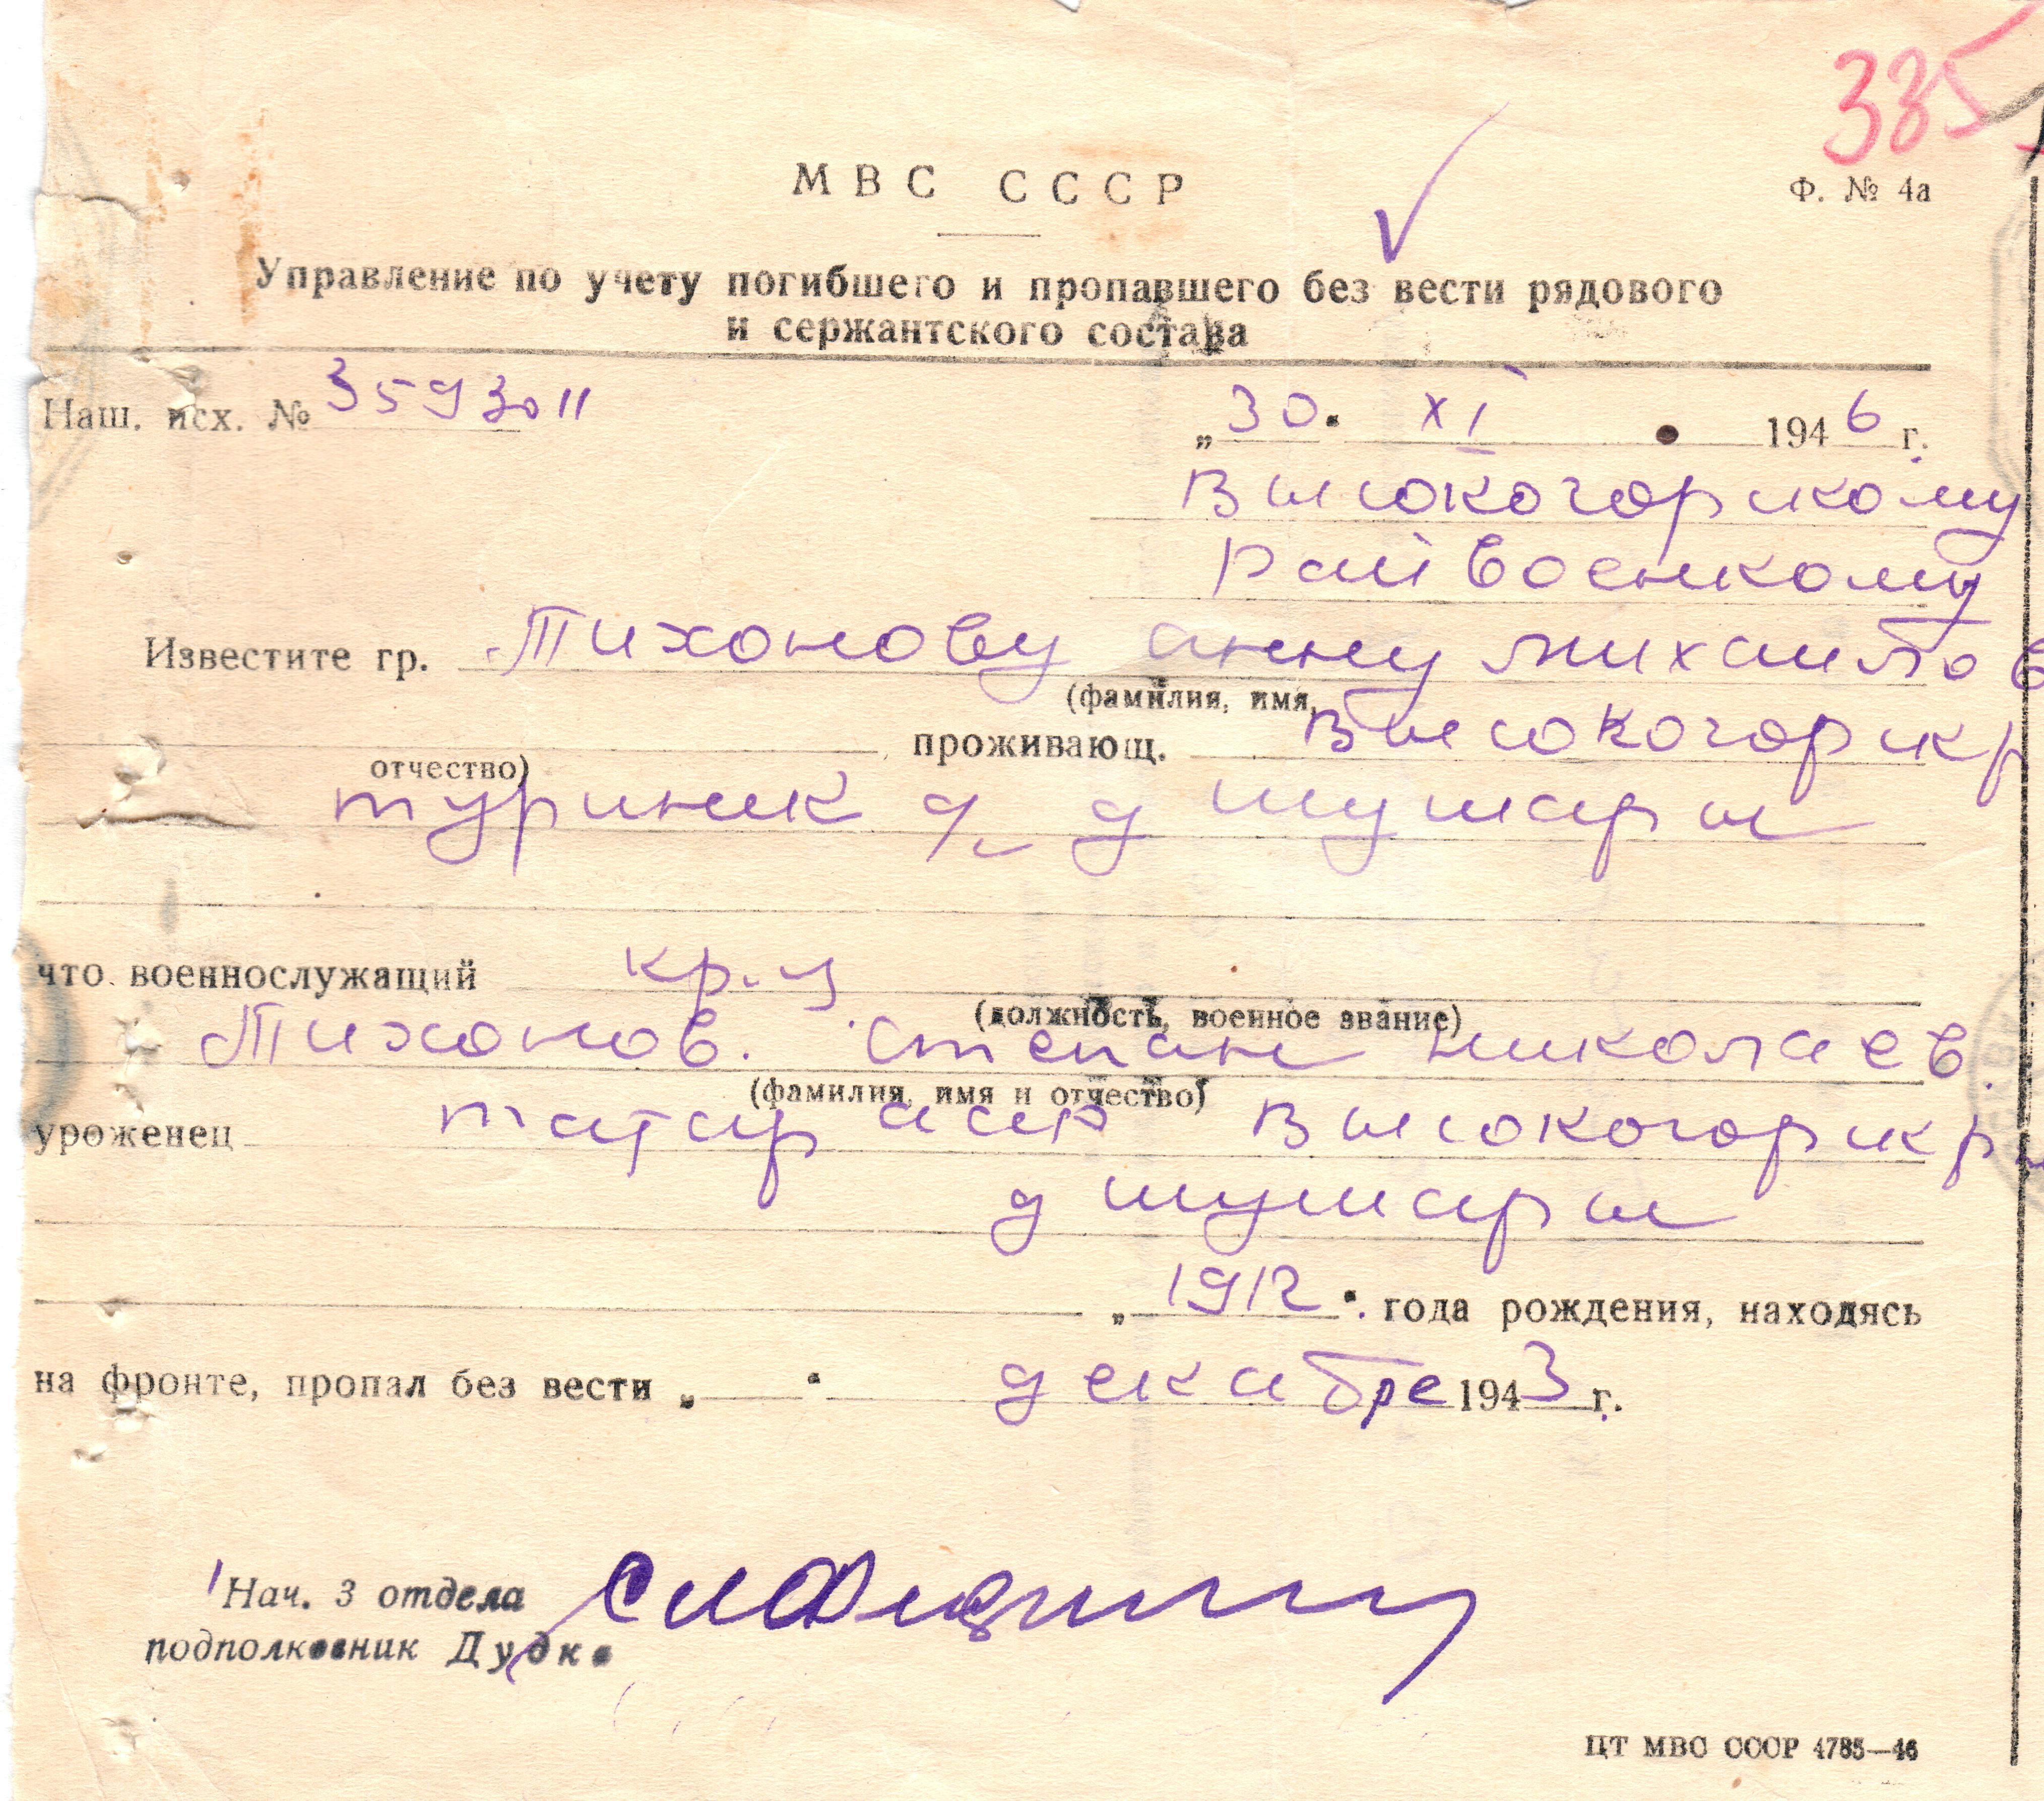 385
МВС СССР
Ф. № 4а
Управление по учету погибшего и пропавшего без вести рядового
и сержантского состава
Наш. исх. № 3593011
„30“ XI 1946 г.
Высокогорскому
райвоенкому
Известите гр. Тихонову анну михайлов
(фамилия, имя,
проживающ. Высокогорск р
отчество)
д шушары
что военнослужащий кр-ц
(должность, военное звание)
Тихонов. Степан николаев.
(фамилия, имя и отчество)
уроженец татар асср Высокогорск р
д шушары
„1912“. года рождения, находясь
на фронте, пропал без вести „ “ декабре 1943 г.
Нач. 3 отдела
подполковник Дудко
ЦТ МВС СССР 4785—46